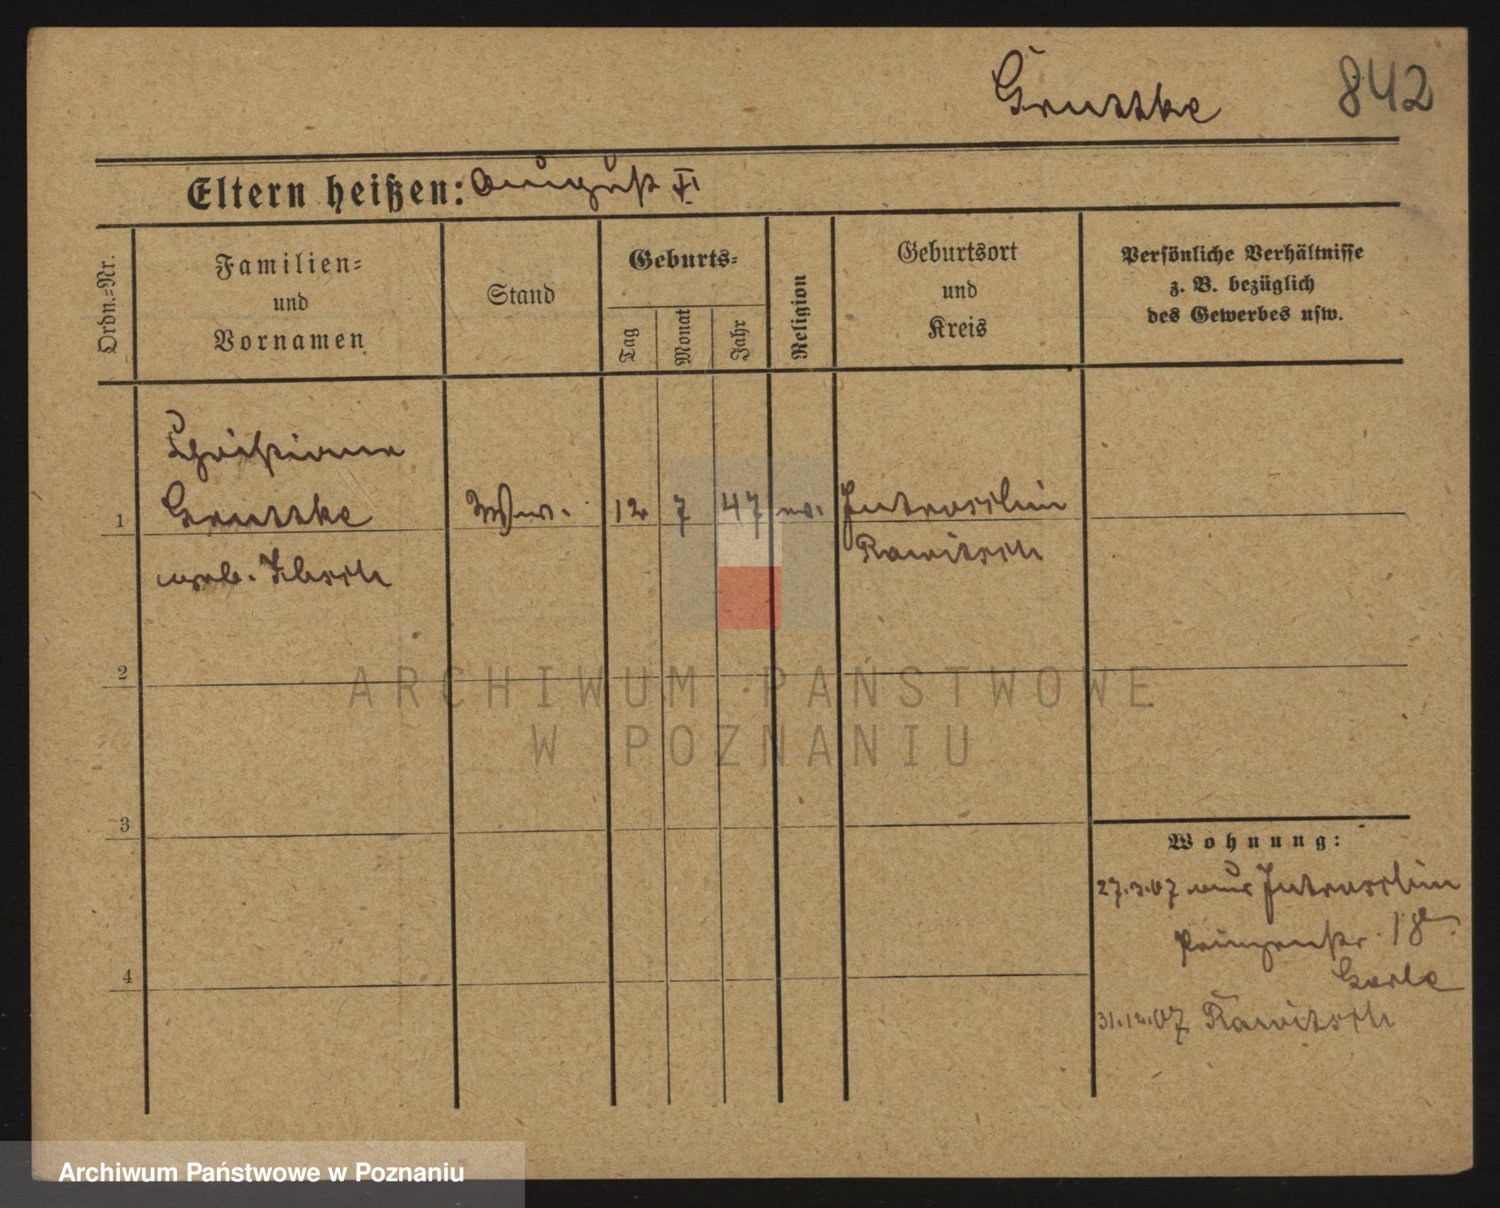 Gruttke 842
Eltern heißen: August †
Ordn.-Nr.
Familien-
und
Vornamen
Stand
Geburts-
Tag
Monat
Jahr
Religion
Geburtsort
und
Kreis
Persönliche Verhältnisse
z. B. bezüglich
des Gewerbes usw.
Christiane
1 Gruttke Ww. 12 7 47 ev. Jutroschin
Rawitsch
geb.
2
3
4
Wohnung:
27.3.07 aus Jutroschin
Prinzenstr. 18
31.12.07 Rawitsch
ARCHIWUM PAŃSTWOWE
W POZNANIU
Archiwum Państwowe w Poznaniu